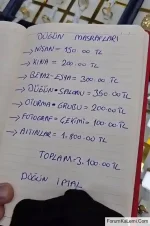 DÜĞÜN MASRAFLARI
→ NİŞAN = 150.00 TL
→ KINA = 200.00 TL
→ BEYAZ-EŞYA = 300.00 TL
→ DÜĞÜN SALONU = 350.00 TL
→ OTURMA GRUBU = 200.00 TL
→ FOTOĞRAF ÇEKİMİ = 100.00 TL
→ ALTINLAR = 1.800.00 TL
TOPLAM = 3.100.00 TL
DÜĞÜN İPTAL
ForumKalemi.Com